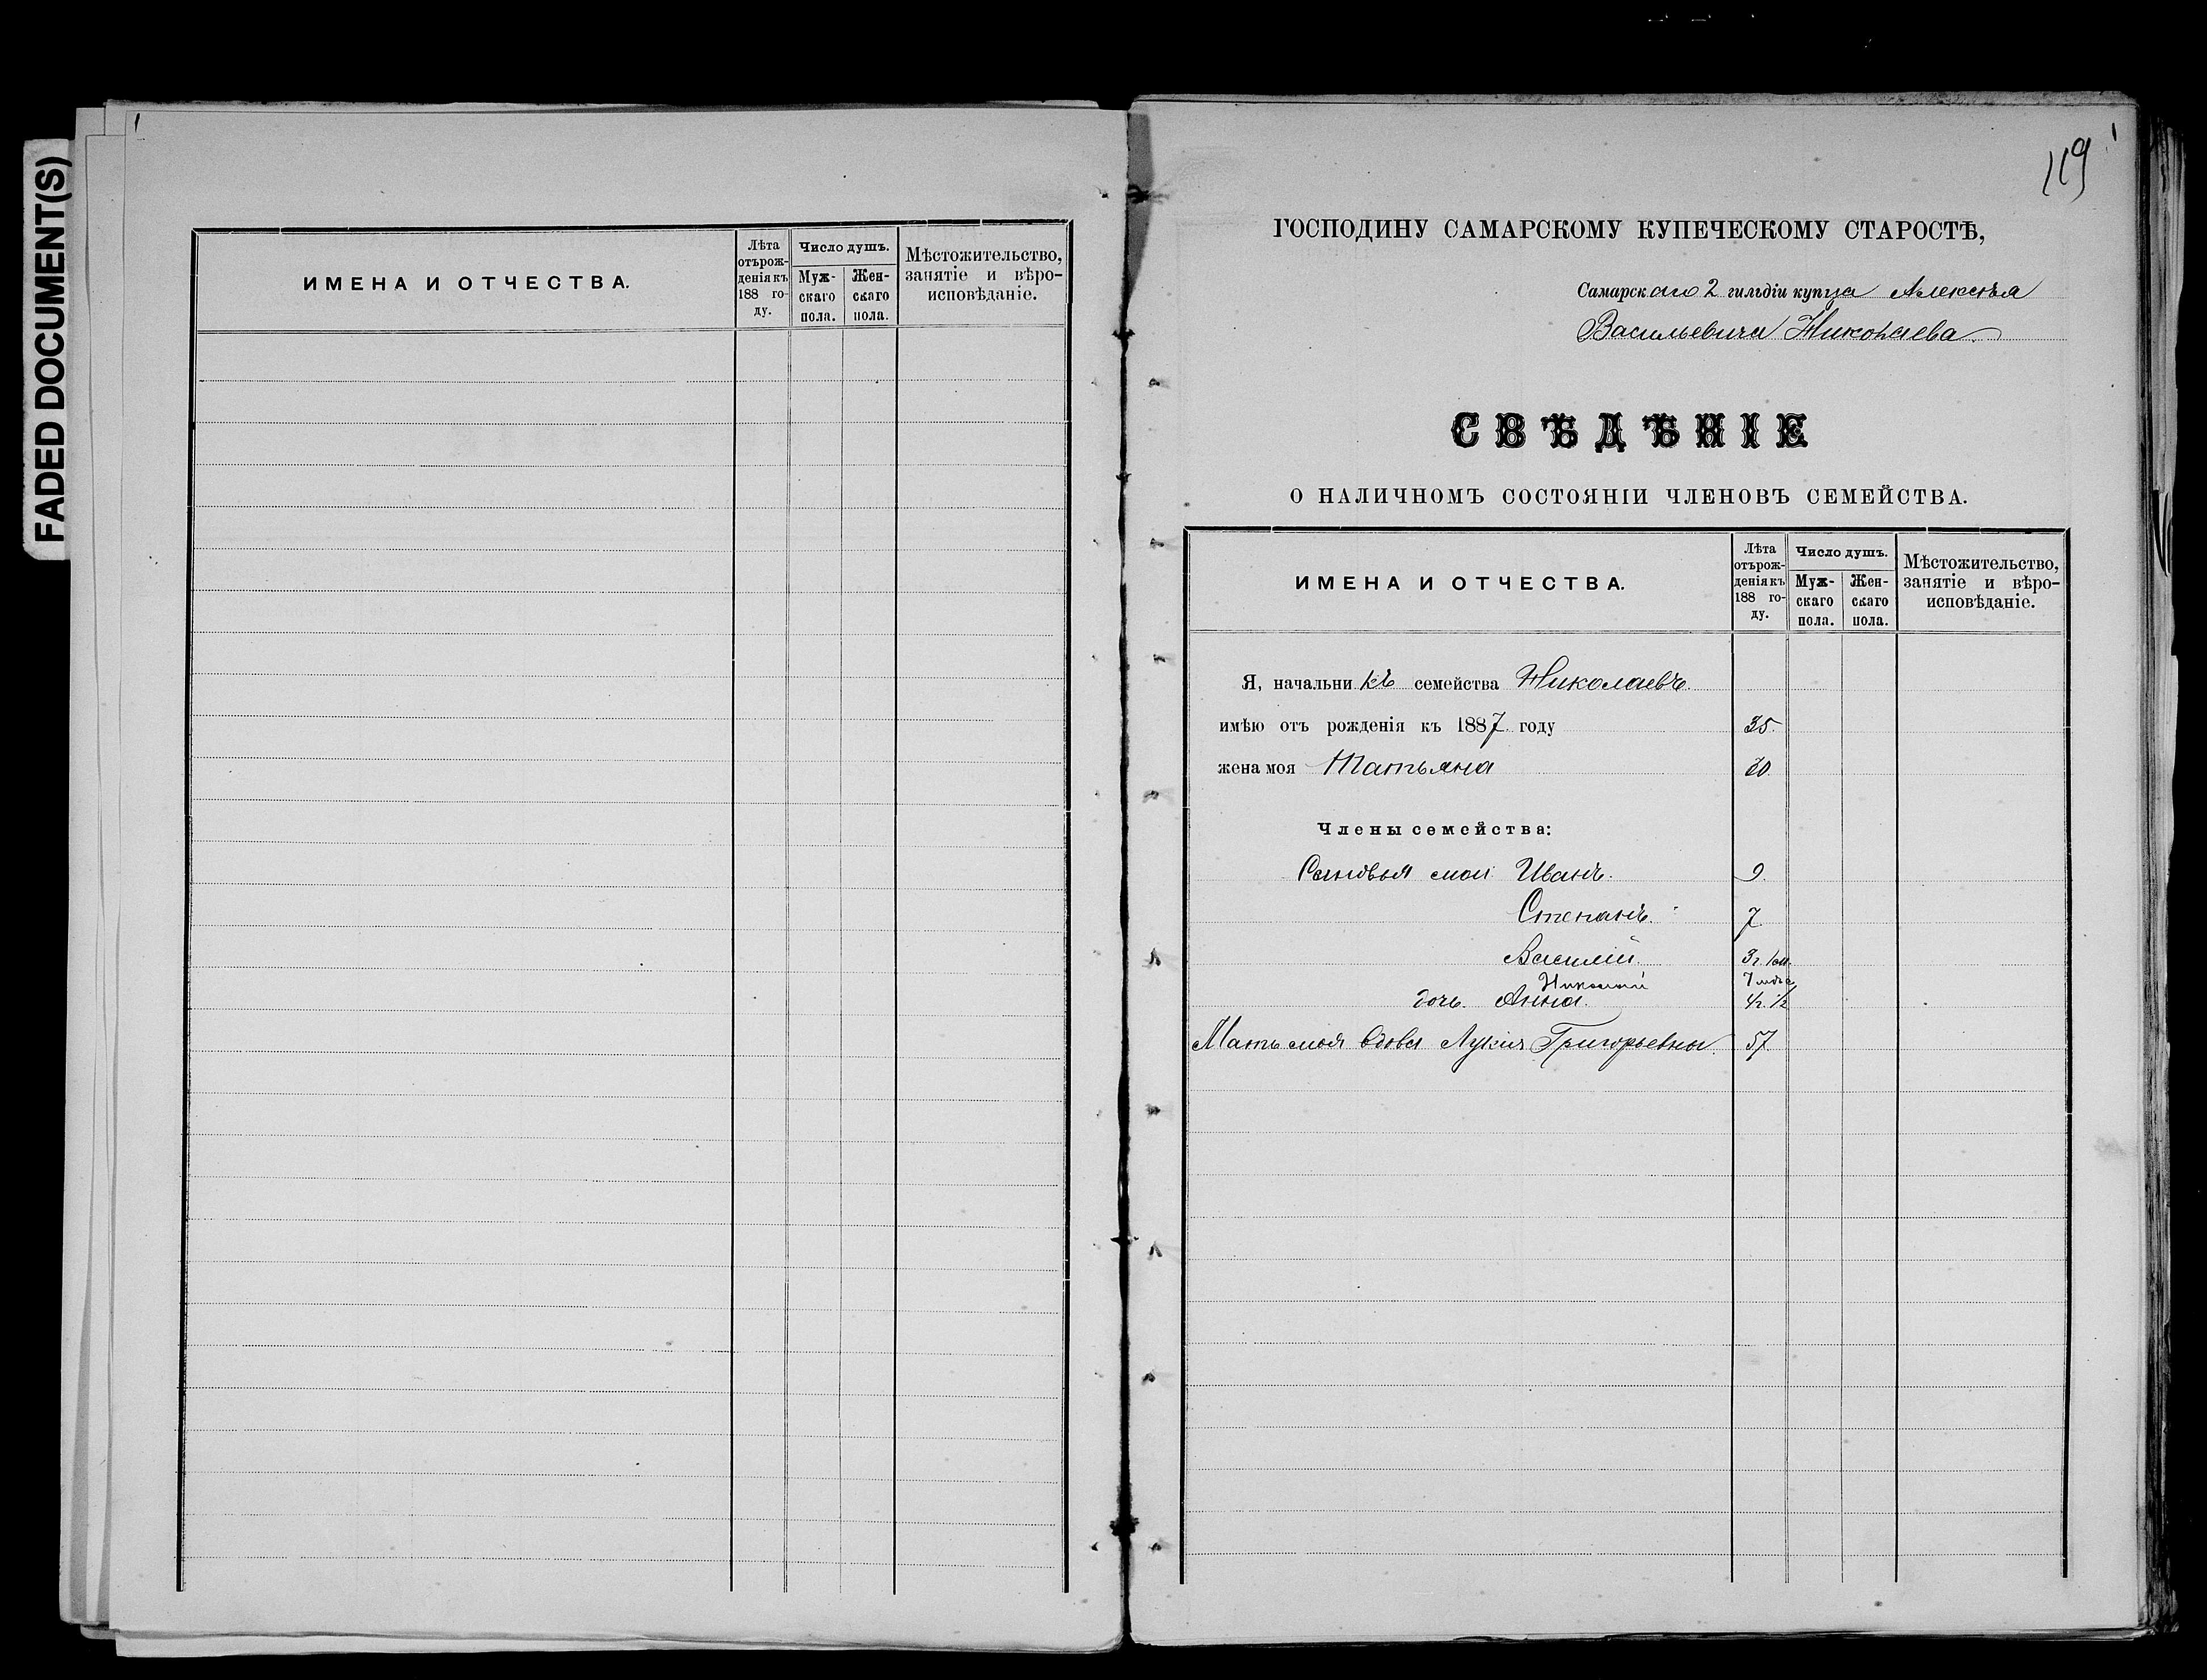 FADED DOCUMENT(S)
ИМЕНА И ОТЧЕСТВА.
Лѣта
отърож-
денія къ
188 го-
ду.
Число душъ.
Муж-
скаго
пола.
Жен-
скаго
пола.
Мѣстожительство,
занятіе и вѣро-
исповѣданіе.
119
ГОСПОДИНУ САМАРСКОМУ КУПЕЧЕСКОМУ СТАРОСТѢ,
Самарскаго 2 гильдіи купца Алексѣя
Васильевича Николаева
СВѢДѢНІЕ
О НАЛИЧНОМЪ СОСТОЯНІИ ЧЛЕНОВЪ СЕМЕЙСТВА.
ИМЕНА И ОТЧЕСТВА.
Лѣта
отърож-
денія къ
188 го-
ду.
Число душъ.
Муж-
скаго
пола.
Жен-
скаго
пола.
Мѣстожительство,
занятіе и вѣро-
исповѣданіе.
Я, начальникъ семейства Николаевъ.
имѣю отъ рожденія къ 1887 году 35.
жена моя Татьяна 30.
Члены семейства:
Сыновья мои Иванъ. 9.
Степанъ. 7.
Василій. 3г.
Николай 7 мѣс
дочь Анна. 4г. 1/2
Мать моя вдова Лукія Григорьевна. 57